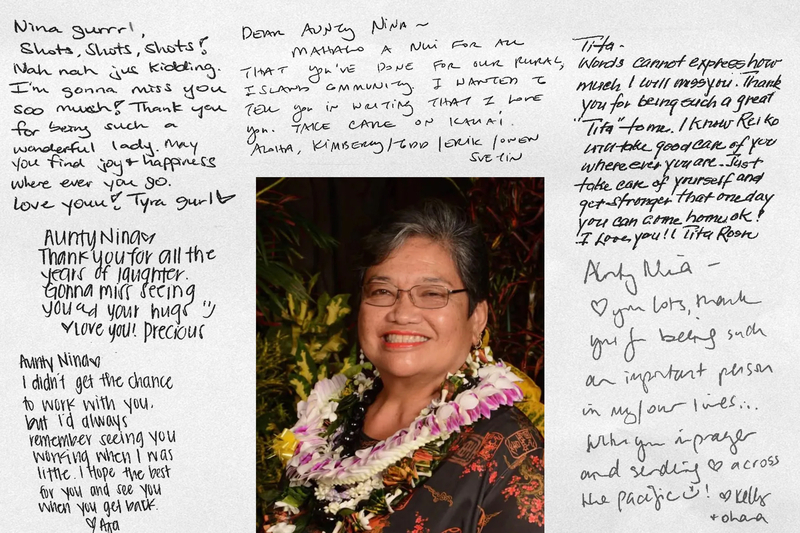 Nina gurrrl,
Shots, Shots, Shots!
Nah nah jus kidding.
I'm gonna miss you
soo much! Thank you
for being such a
wonderful lady. May
you find joy & happiness
where ever you go.
Love youu! Tyra gurl♡
Aunty Nina♡
Thank you for all the
years of laughter.
Gonna miss seeing
you and your hugs :)
♡Love you! Precious
Aunty Nina♡
I didn't get the chance
to work with you,
but I'd always
remember seeing you
working when I was
little. I Hope the best
for you and see you
when you get back.
♡
DEAR AUNTY NINA ~
MAHALO A NUI FOR ALL
THAT YOU'VE DONE FOR OUR RURAL,
ISLAND COMMUNITY. I WANTED TO
TELL YOU IN WRITING THAT I LOVE
YOU. TAKE CARE ON KAUAI.
ALOHA, KIMBERLY/TODD/ERIK/OWEN
SVETIN
Tita-
Words cannot express how
much I will miss you. Thank
you for being such a great
"Tita" to me. I know Reiko
will take good care of you
where ever you are. Just
take care of yourself and
get stronger that one day
you can come home ok!
I Love you!! Tita Rosn
Aunty Nina -
♡ you lots, thank
you for being such
an important person
in my/our lives...
With you in prayer
and sending ♡ across
the pacific :)! ♡ Kelly
+ ohana